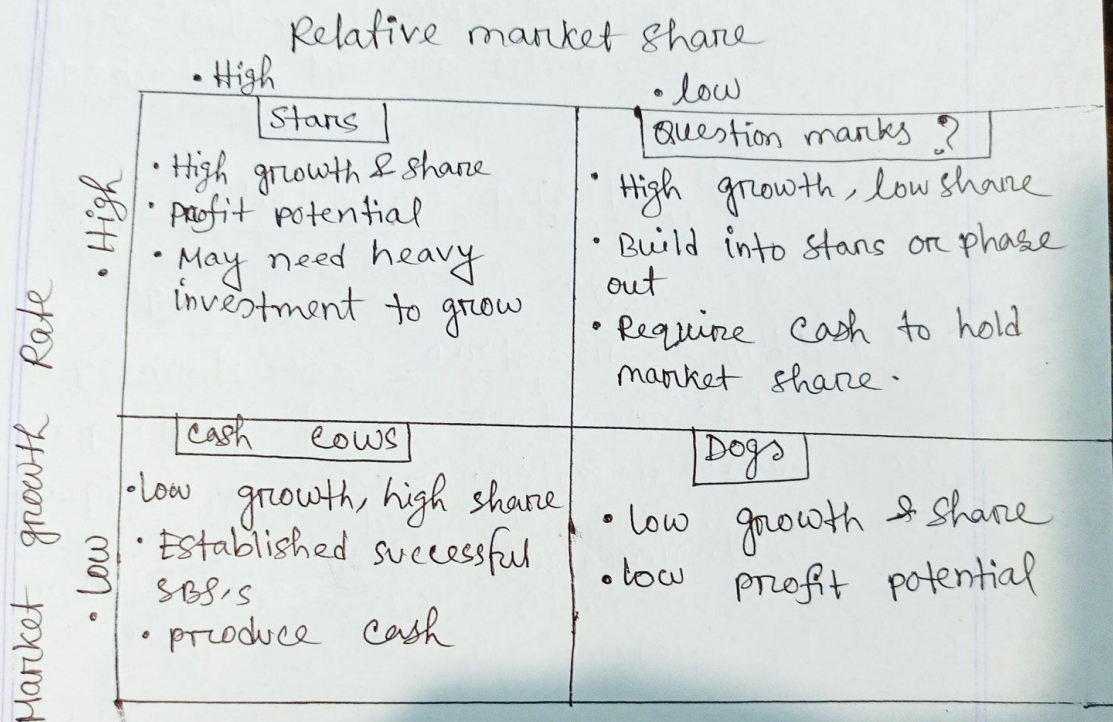 Relative market share
• High
• low
Stars
• High growth & share
• profit potential
• May need heavy
investment to grow
Question marks ?
• High growth, low share
• Build into stars or phase
out
• Require cash to hold
market share.
Cash cows
• Low growth, high share
• Established successful
SBS,s
• produce cash
Dogs
• low growth & share
• low profit potential
Market growth Rate
• High
• Low